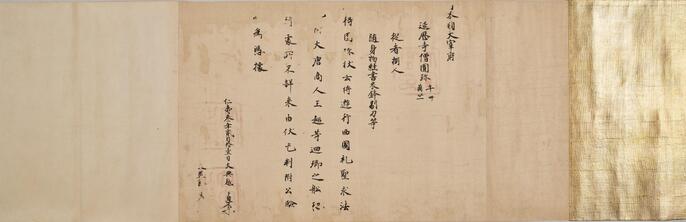 日本國大宰府
延暦寺僧圓珍 年卌 臈廿一
從者捌人
随身物經書衣鉢剔刀等
得圓珍状云將遊行西國礼聖求法
大唐商人王超等廻郷之船恐
到處所不詳来由伏乞判附公驗
以為憑據
仁壽叁年貳月拾壹日大典越